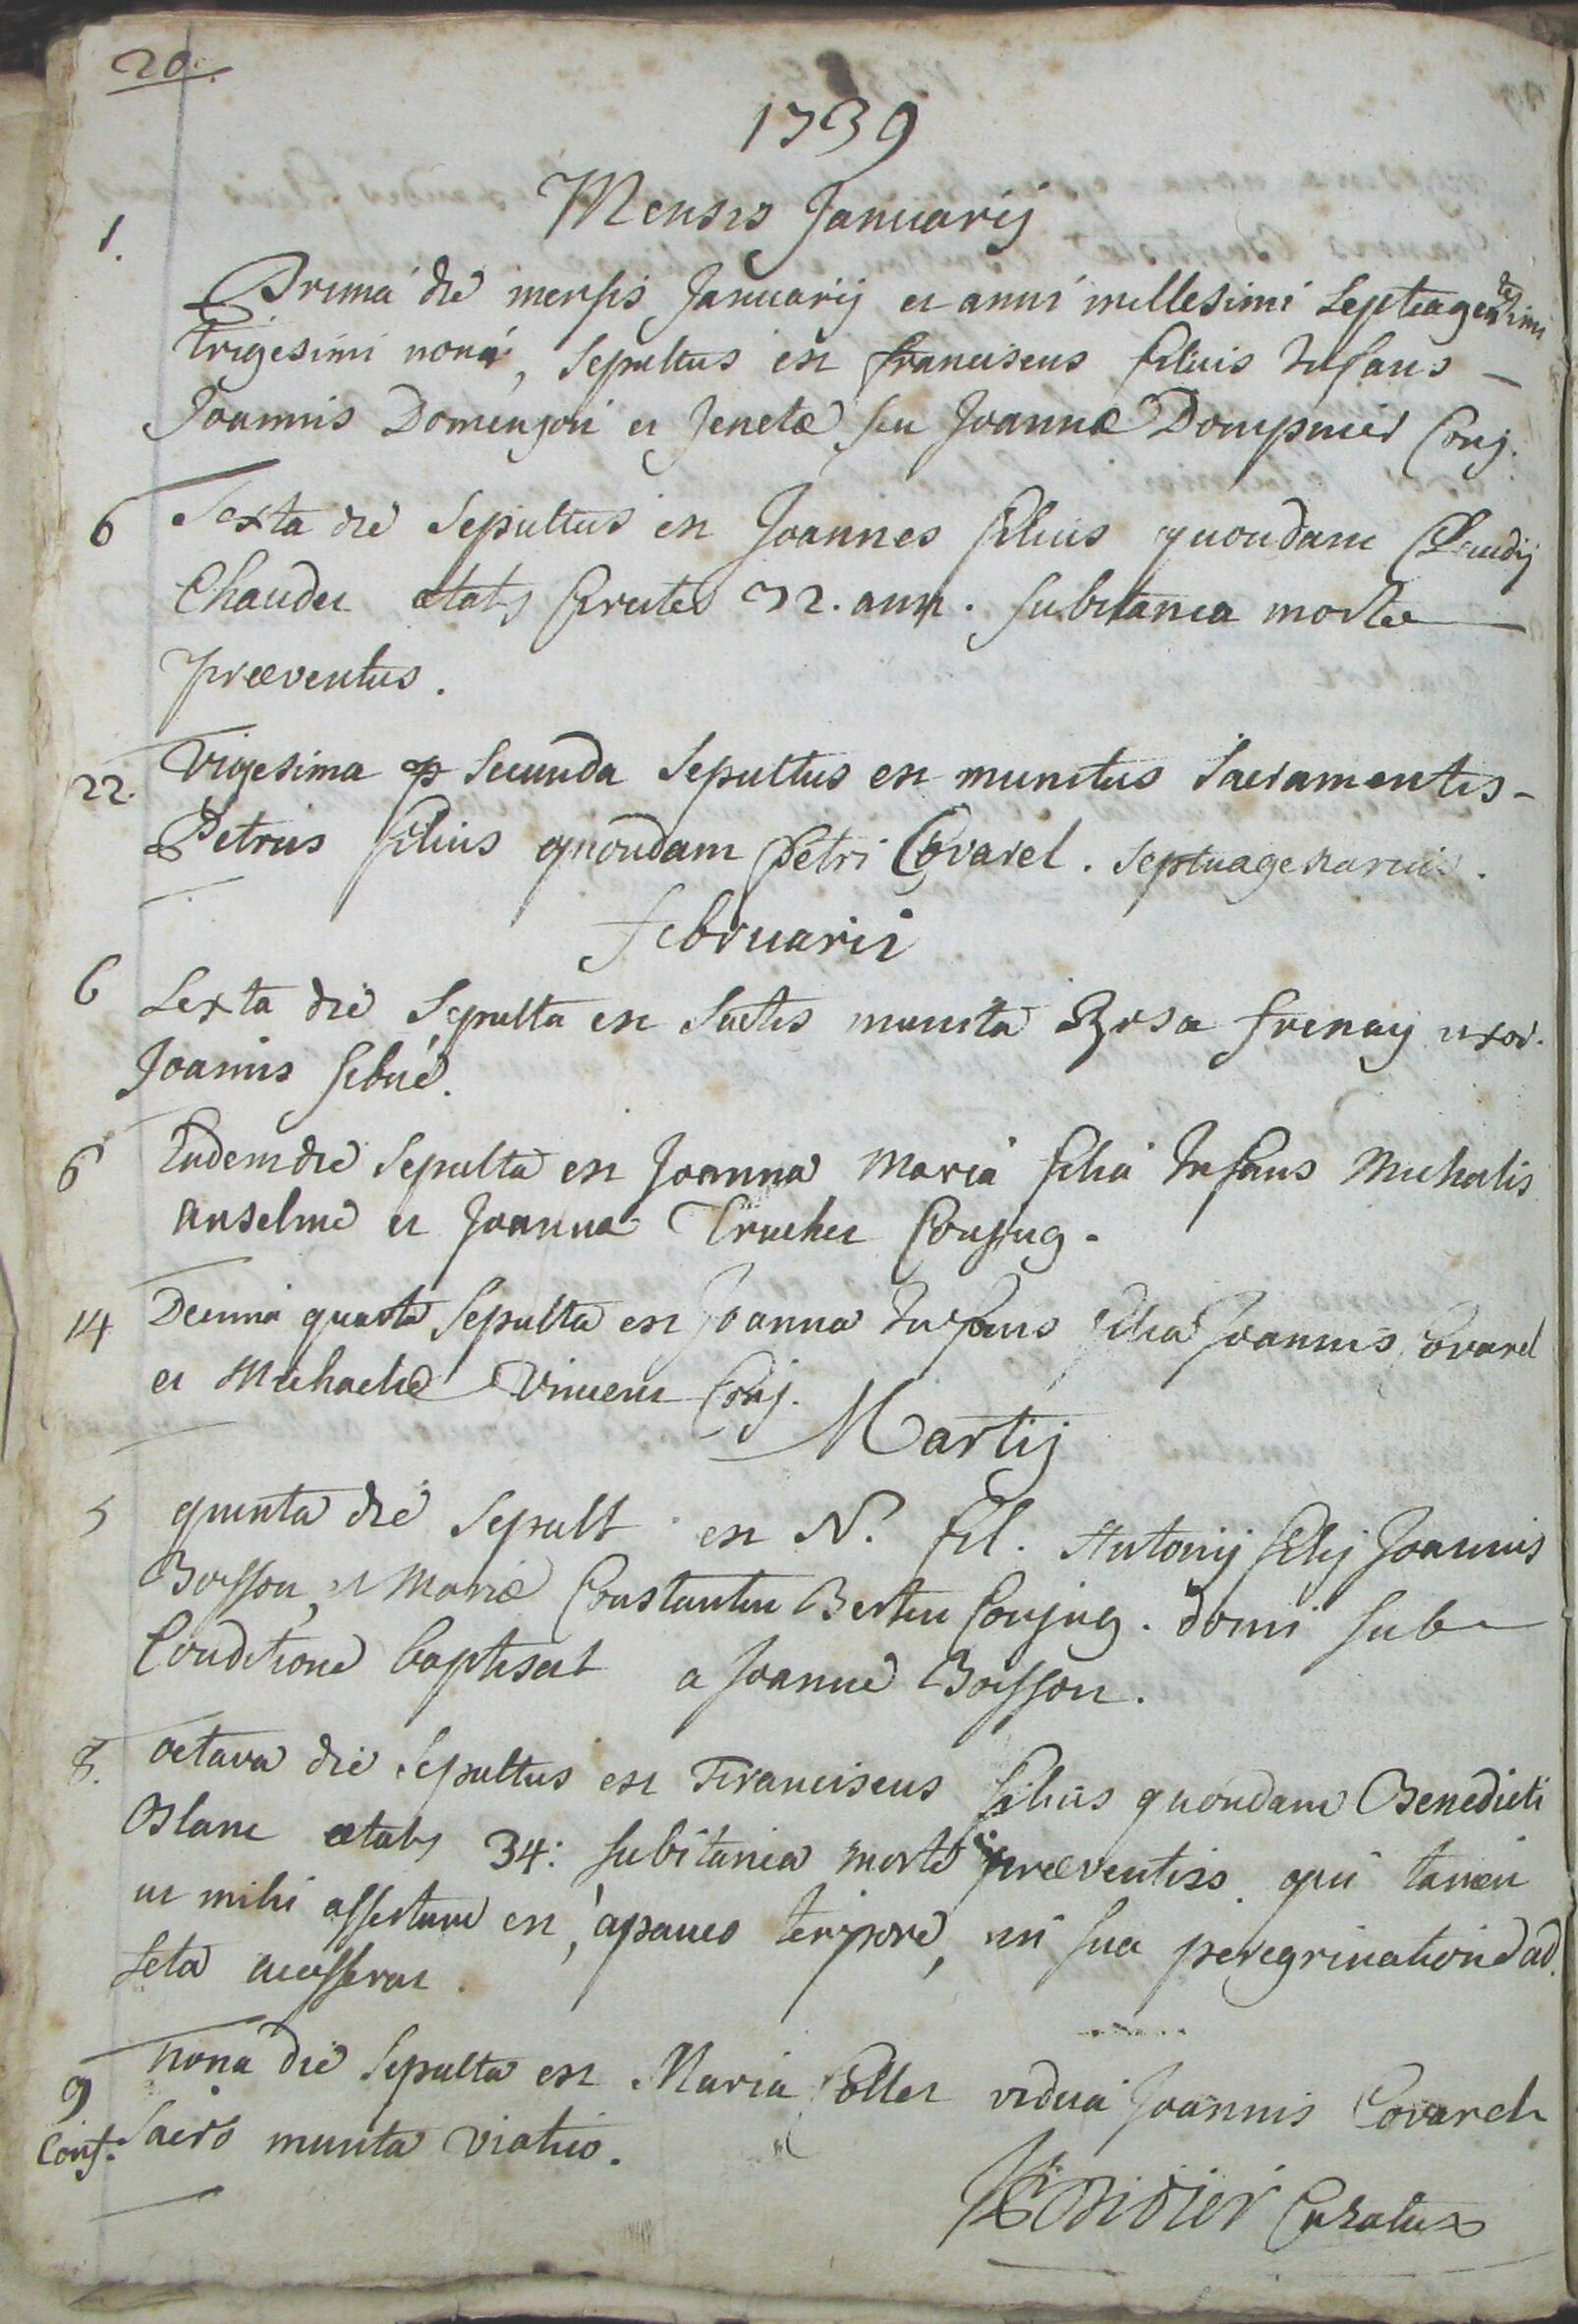 20.
1739
Mensis Januarij
1.
Prima die mensis Januarij et anni millesimi Septuagentesimi
trigesimi nona, Sepultus est franciscus filius Infans -
Joannis Domenjon et Jenetæ seu Joannæ Dompnier Conj.
6 Sexta die Sepultus est Joannes filius quondam Claudij
Chaudet ætatis circiter 32. ann. subitanea morte
præventus.
22. Vigesima Secunda Sepultus est munitus Sacramentis -
Petrus filius quondam Petri Covarel. Septuagenarius.
februarii
6 Sexta die Sepulta est Sactis munita Rosa frenay uxor.
Joannis febue.
6 Eademdie Sepulta est Joanna Maria filia Infans Michaelis
anselme et Joanna Truchet Conjug.
14 Decima quarta Sepulta est Joanna Infans filia Joannis Covarel
et Michaelæ Vincent Conj.
Martij
5 quinta die Sepult est N. fil. Antonij filij Joannis
Boisson, et Mariæ Constantin Bertin Conjug. domi sub
Conditione baptisat a Joanne Boisson.
8. octava die Sepultus est Franciscus filius quondam Benedicti
ætatis 34: subitanea morte præventus. qui tamen
ut mihi assertum est, a pauco tempore, in sua peregrinatione ad
Scta accesserat.
9 nona die Sepulta est Maria Collet vidua Joannis Covarel
Conf. sacro munita viatico.
Didier Curatus